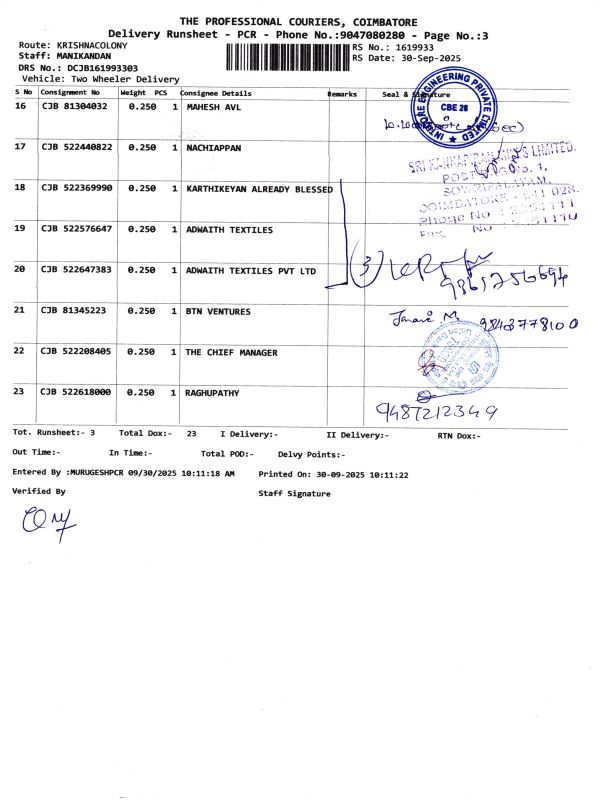 THE PROFESSIONAL COURIERS, COIMBATORE
Delivery Runsheet - PCR - Phone No.:9047080280 - Page No.:3
Route: KRISHNACOLONY
RS No.: 1619933
Staff: MANIKANDAN
RS Date: 30-Sep-2025
DRS No.: DCJB161993303
Vehicle: Two Wheeler Delivery
S No Consignment No Weight PCS Consignee Details Remarks Seal & Signature
16 CJB 81304032 0.250 1 MAHESH AVL
ENGINEERING PRIVATE LIMITED
CBE 28
17 CJB 522440822 0.250 1 NACHIAPPAN
LIMITED.
POST No. 1,
SOWRIPALAYAM,
COIMBATORE - 641 028.
Phone No
Fax No
18 CJB 522369990 0.250 1 KARTHIKEYAN ALREADY BLESSED
19 CJB 522576647 0.250 1 ADWAITH TEXTILES
20 CJB 522647383 0.250 1 ADWAITH TEXTILES PVT LTD
(3)
21 CJB 81345223 0.250 1 BTN VENTURES
9843778100
22 CJB 522208405 0.250 1 THE CHIEF MANAGER
23 CJB 522618000 0.250 1 RAGHUPATHY
9487212349
Tot. Runsheet:- 3 Total Dox:- 23 I Delivery:- II Delivery:- RTN Dox:-
Out Time:- In Time:- Total POD:- Delvy Points:-
Entered By :MURUGESHPCR 09/30/2025 10:11:18 AM Printed On: 30-09-2025 10:11:22
Verified By Staff Signature